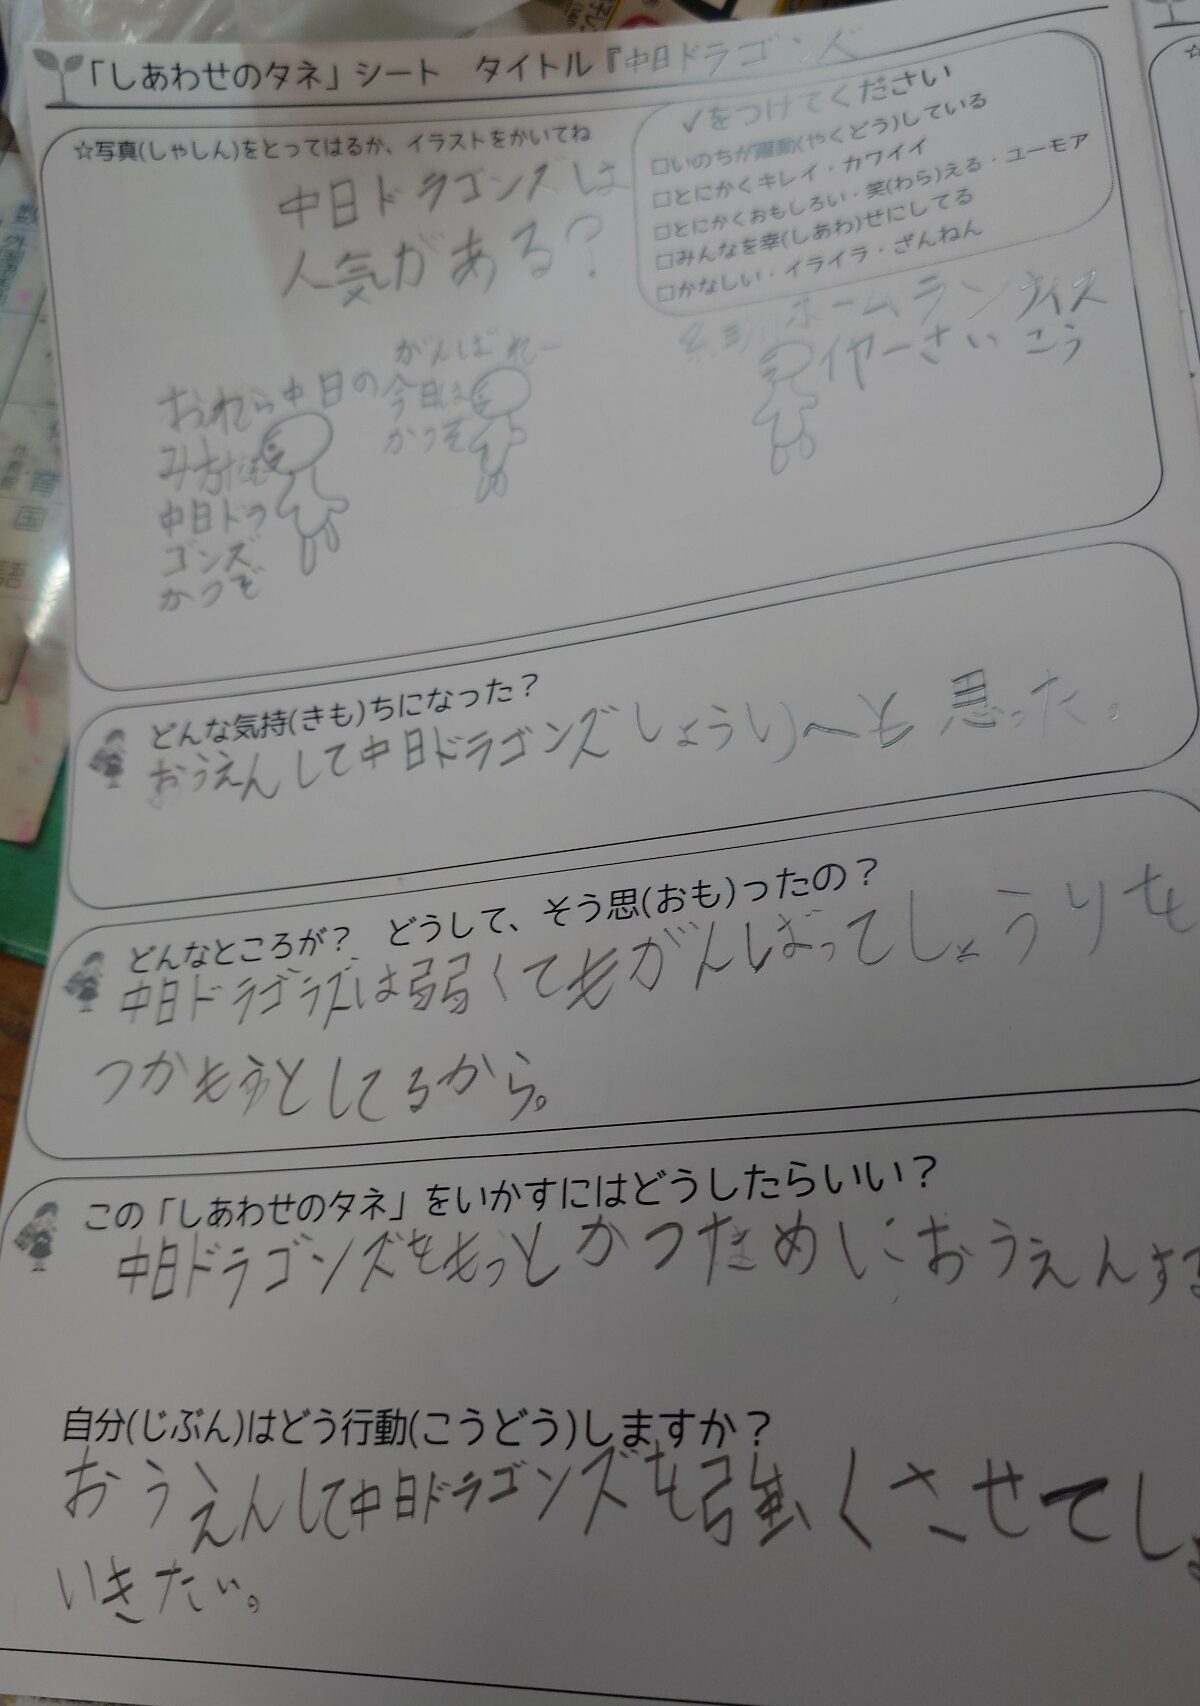 「しあわせのタネ」シート　タイトル『中日ドラゴンズ
☆写真(しゃしん)をとってはるか、イラストをかいてね
✓をつけてください
□いのちが躍動(やくどう)している
□とにかくキレイ・カワイイ
□とにかくおもしろい・笑(わら)える・ユーモア
□みんなを幸(しあわ)せにしてる
□かなしい・イライラ・ざんねん
中日ドラゴンズは
人気がある？
おれら中日の
み方だも
中日ドラ
ゴンズ
かつぞ
がんばれー
今日は
かつぞ
ホームラン ナイス
イヤーさいこう
どんな気持(きも)ちになった？
おうえんして中日ドラゴンズしょうりへと思った。
どんなところが？　どうして、そう思(おも)ったの？
中日ドラゴラズは弱くてもがんばってしょうりを
つかもうとしてるから。
この「しあわせのタネ」をいかすにはどうしたらいい？
中日ドラゴンズをもっとかつためにおうえんする
自分(じぶん)はどう行動(こうどう)しますか？
おうえんして中日ドラゴンズを強くさせてし
いきたい。
育
国
語